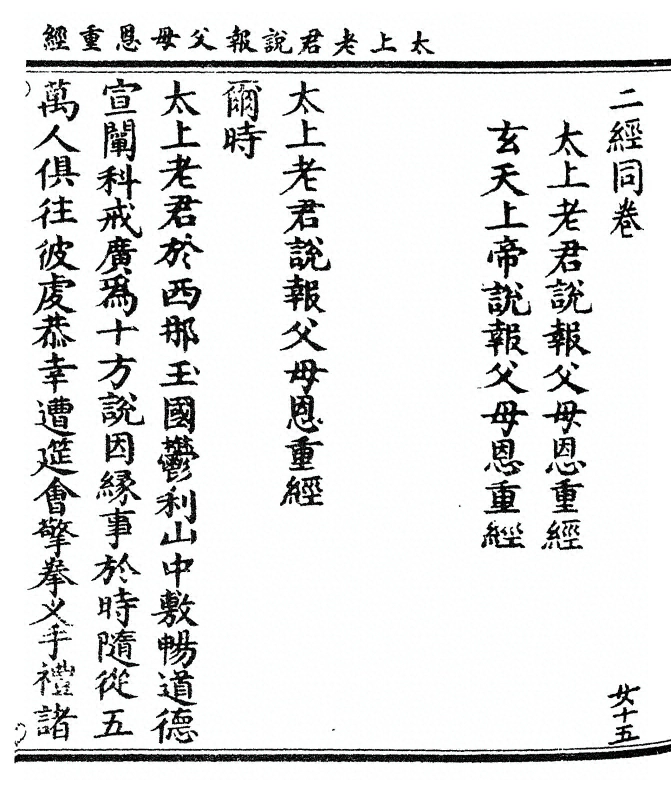 太上老君說報父母恩重經
二經同卷
女十五
太上老君說報父母恩重經
玄天上帝說報父母恩重經
太上老君說報父母恩重經
爾時
太上老君於西那玉國鬱利山中敷暢道德
宣闡科戒廣爲十方說因緣事於時隨從五
萬人俱往彼處恭幸遭筵會擎拳义手禮諸